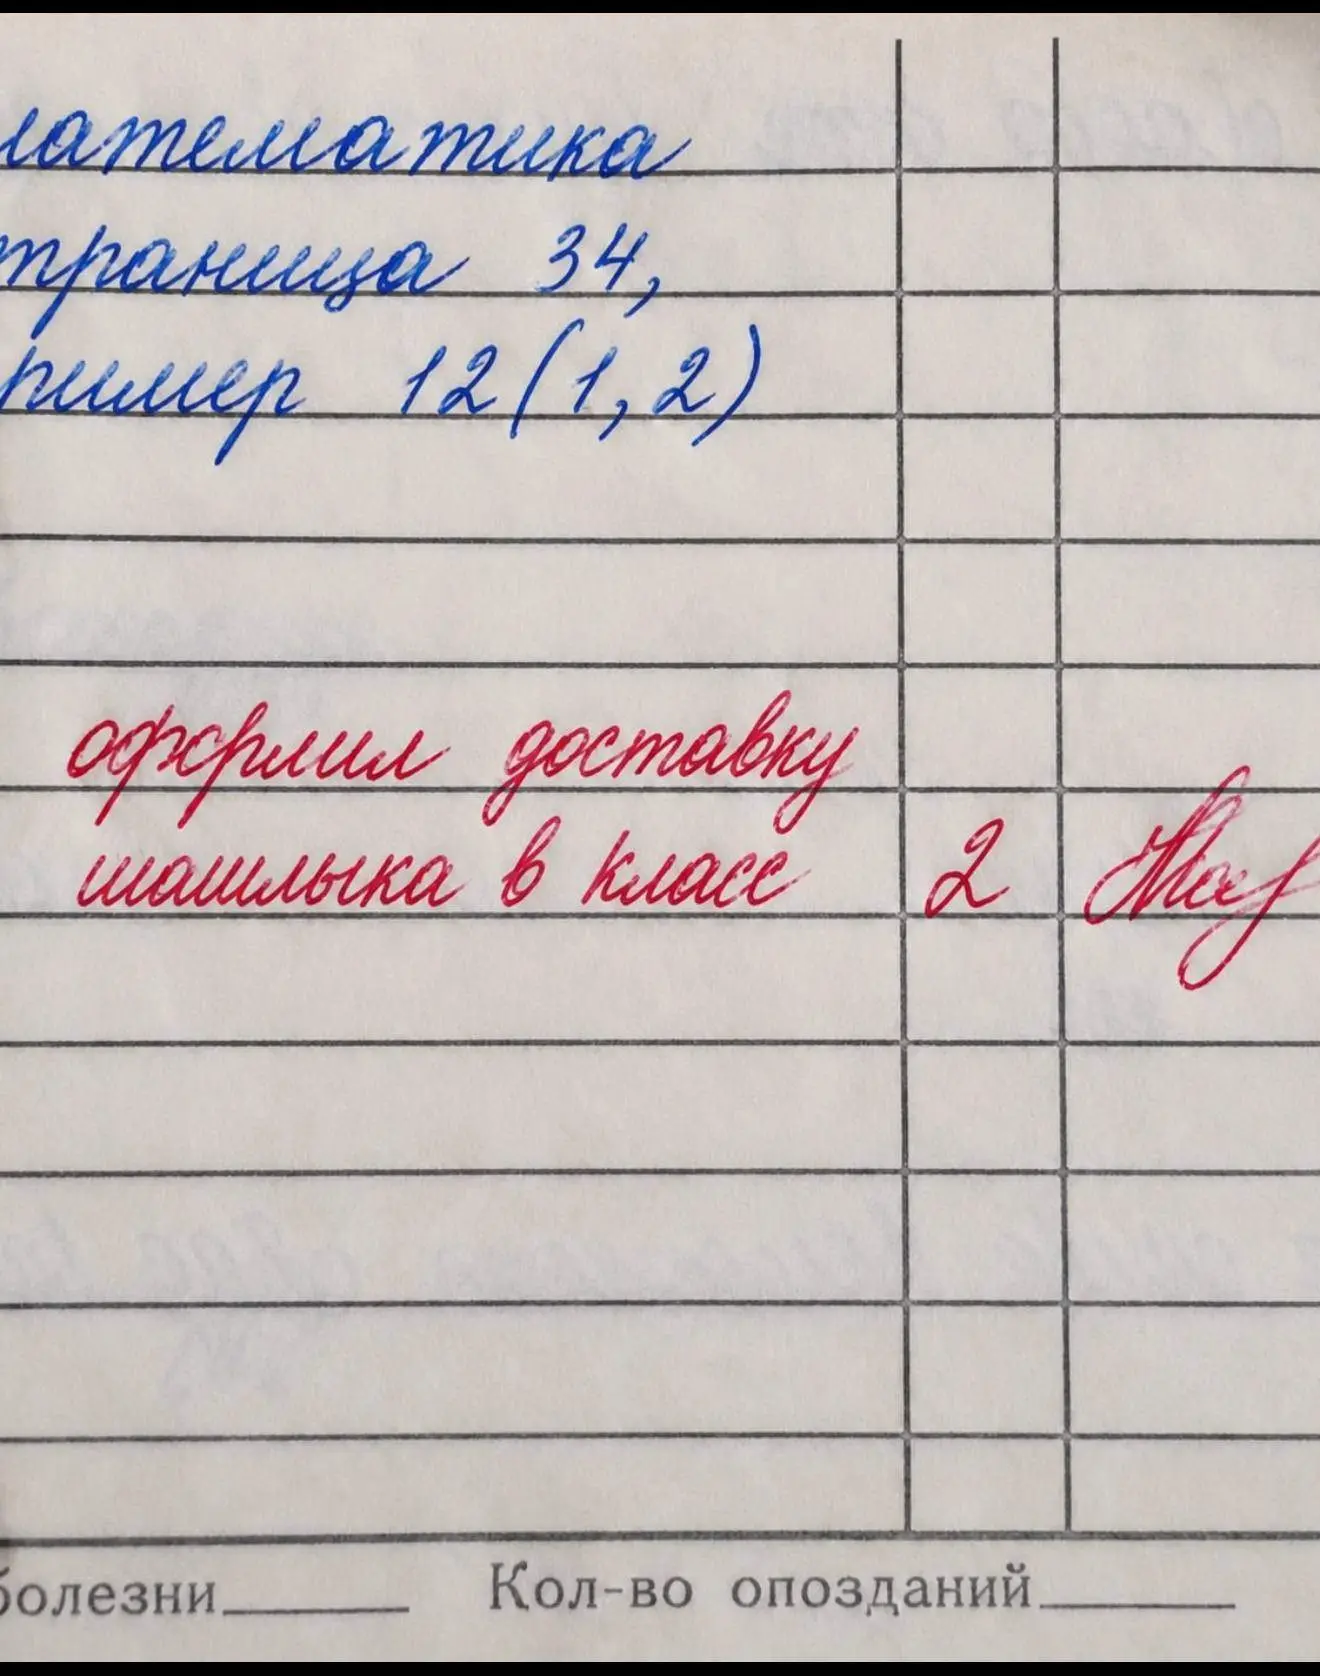 математика
траница 34,
ример 12(1,2)
оформил доставку
шашлыка в класс 2
болезни Кол-во опозданий